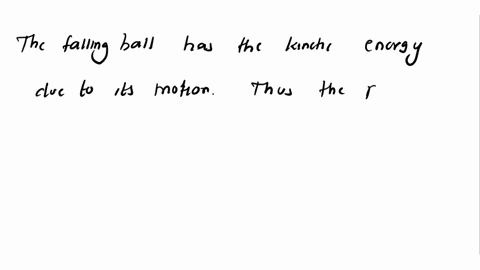 The falling ball has the kinetic energy
due to its motion. Thus the r